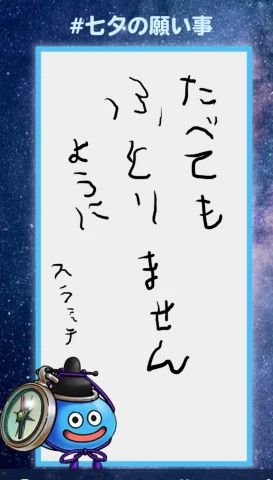 #七夕の願い事
たべても
ふとりません
ように
スラミチ